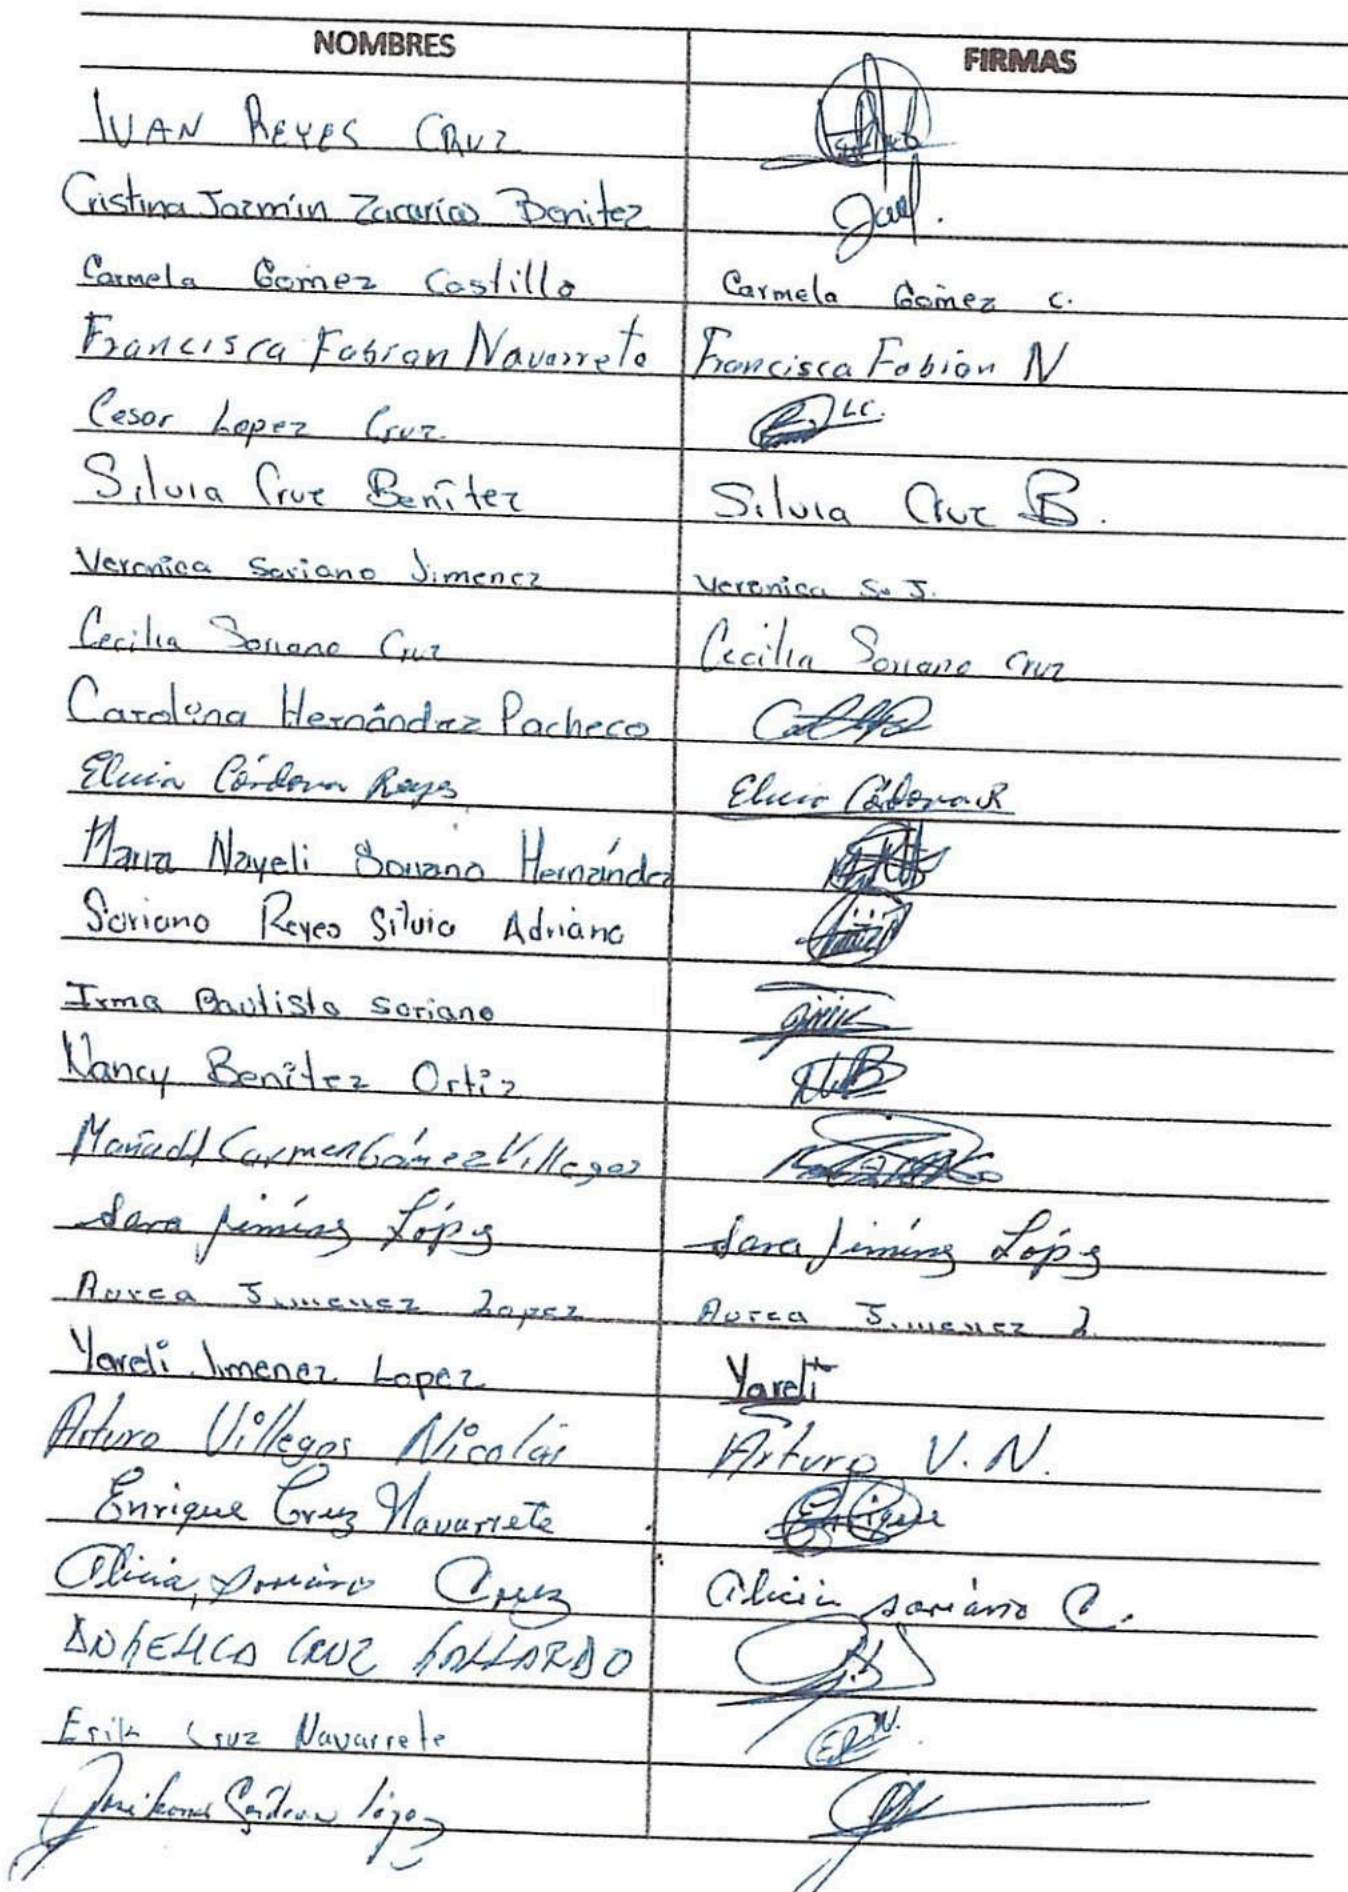 NOMBRES FIRMAS
IVAN REYES CRUZ
Cristina Jazmín Zacarías Benitez
Carmela Gómez Castillo Carmela Gómez C.
Francisca Fabian Navarrete Francisca Fabián N
Cesar Lopez Cruz LC.
Silvia Cruz Benítez Silvia Cruz B.
Veronica Soriano Jimenez Veronica S. J.
Cecilia Soriano Cruz Cecilia Soriano Cruz
Carolina Hernández Pacheco
Elvia Córdova Reyes Elvia Córdova R
Maria Nayeli Soriano Hernández
Soriano Reyes Silvia Adriana
Irma Bautista Soriano
Nancy Benítez Ortiz
María del Carmen Gómez Villegas
Sara Jiménez López Sara Jiménez López
Aurea Jimenez Lopez Aurea Jimenez L.
Yareli Jimenez Lopez Yareli
Arturo Villegas Nicolás Arturo V. N.
Enrique Cruz Navarrete Enrique
Alicia Soriano Cruz Alicia Soriano C.
ANGELICA CRUZ GALLARDO
Erik Cruz Navarrete